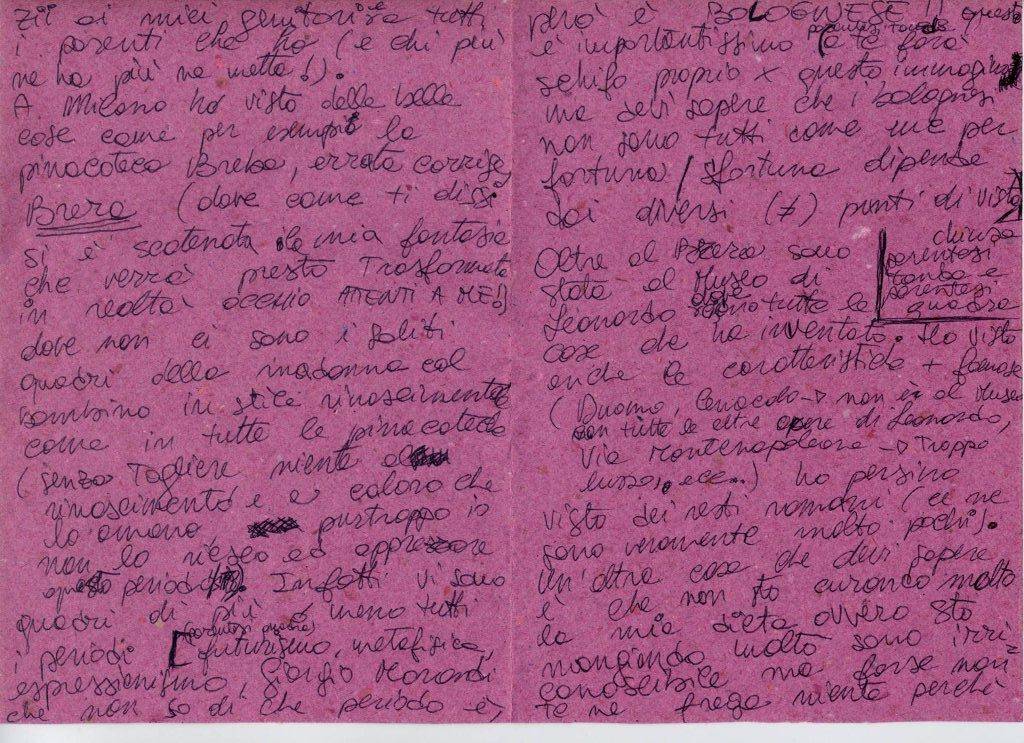 zii ai miei genitori e a tutti
i parenti che ho (e chi più
ne ha più ne metta!).
A Milano ho visto delle belle
cose come per esempio la
pinacoteca Breba, errata corrige,
Brera (dove come ti dissi
si è scatenata la mia fantasia
che verrà presto trasformata
in realtà occhio ATTENTI A ME!)
dove non ci sono i soliti
quadri della madonna col
bambino in stile rinascimentale
come in tutte le pinacoteche
(senza togliere niente al
rinascimento e a coloro che
lo amano purtroppo io
non lo riesco ad apprezzare
questo periodo). Infatti vi sono
quadri di più o meno tutti
i periodi [(parentesi quadra) futurismo, metafisica,
espressionismo, Giorgio Morandi
che non so di che periodo è,
però è BOLOGNESE!! questo
è importantissimo (parentesi tonda) a te farà
schifo proprio x questo immagino
ma devi sapere che i bolognesi
non sono tutti come me per
fortuna/sfortuna dipende
dai diversi (≠) punti di vista)]
chiusa
parentesi
tonda e
parentesi
quadra
Oltre al Brera sono
stata al Museo di
Leonardo dove sono tutte le
cose che ha inventato. Ho visto
anche le caratteristiche + famose
(Duomo, Cenacolo → non è al Museo
con tutte le altre opere di Leonardo,
Via Montenapoleone → Troppo
lusso, ecc...) ho persino
visto dei resti romani (ce ne
sono veramente molto pochi).
Un'altra cosa che devi sapere
è che non sto curando molto
la mia dieta ovvero sto
mangiando molto sono irri=
conoscibile ma forse non
te ne frega niente perché